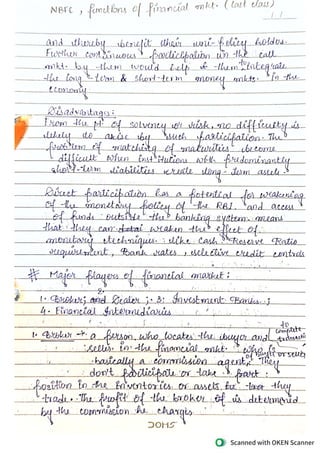 NBFC, functions of financial mkt. (last class)
and thereby benefit their uni-policy holders.
Further continuous participation in the call
mkt. by them would help them to integrate
the long-term & short-term money mkts. in the
economy
Disadvantages:
From the pt of solvency or risk, no difficulty is
likely to arise by such participation. The
problem of matching of maturities become
difficult when institutions with predominantly
short-term liabilities create long term assets.
Direct participation has a potential for weakening
of the monetary policy of the RBI. and access
of funds outside the banking system means
that they can weaken the effect of
monetary techniques like Cash Reserve Ratio
requirement, Bank rates, selective credit controls
# Major players of financial market:
1. Broker; 2. and Dealer; 3. Investment Banks;
4. Financial Intermediaries
1. Broker → a person who locates the buyer and
seller in the financial mkt. who is
to complete transaction
of buyer or seller
basically a commission agent. They
don't participate or take part:
position in the inventories or assets that they
trade. The profit of the broker is determined
by the commission he charges
JOMS
Scanned with OKEN Scanner